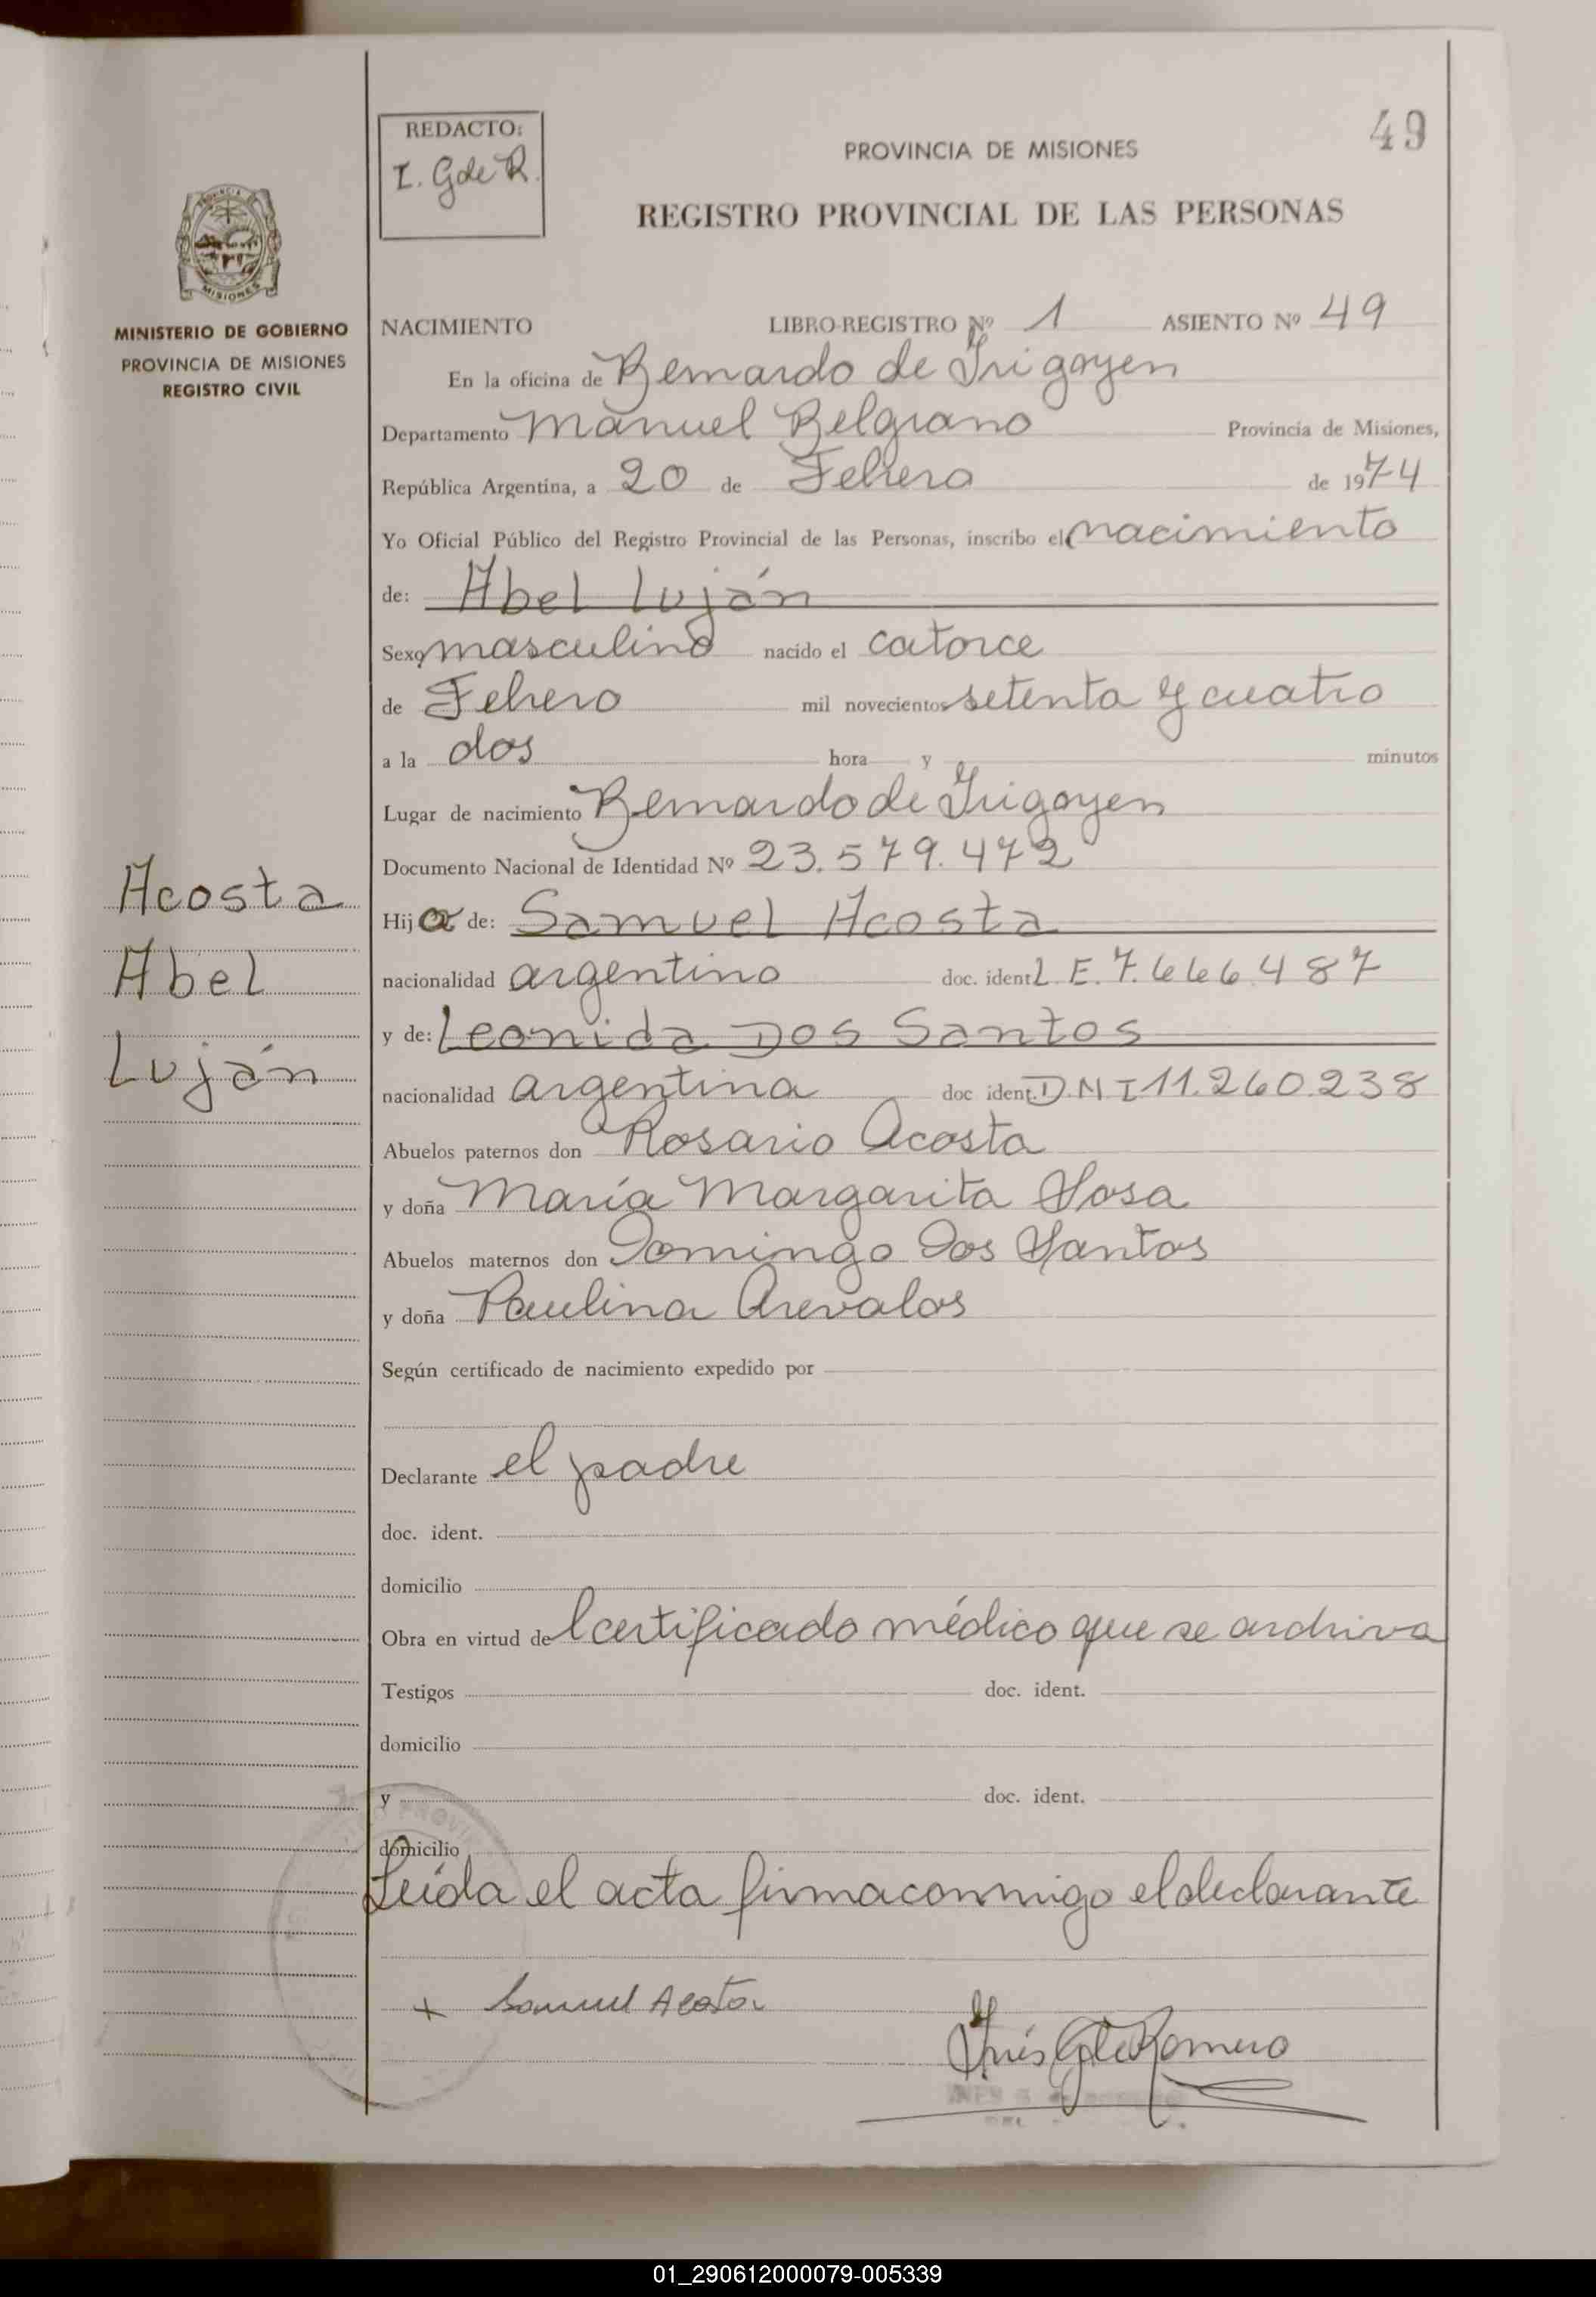 49
REDACTO:
I. G de R.
PROVINCIA DE MISIONES
REGISTRO PROVINCIAL DE LAS PERSONAS
MISIONES
MINISTERIO DE GOBIERNO
PROVINCIA DE MISIONES
REGISTRO CIVIL
NACIMIENTO LIBRO-REGISTRO Nº 1 ASIENTO Nº 49
En la oficina de Bernardo de Irigoyen
Departamento Manuel Belgrano Provincia de Misiones,
República Argentina, a 20 de Febrero de 1974
Yo Oficial Público del Registro Provincial de las Personas, inscribo el nacimiento
de: Abel Luján
Sexo masculino nacido el catorce
de Febrero mil novecientos setenta y cuatro
a la dos hora y minutos
Lugar de nacimiento Bernardo de Irigoyen
Documento Nacional de Identidad Nº 23.579.472
Acosta
Abel
Luján
Hijo de: Samuel Acosta
nacionalidad argentino doc. ident L.E. 7.666.487
y de: Leonida Dos Santos
nacionalidad argentina doc ident. D.N.I 11.260.238
Abuelos paternos don Rosario Acosta
y doña María Margarita Sosa
Abuelos maternos don Domingo Dos Santos
y doña Paulina Arevalos
Según certificado de nacimiento expedido por
Declarante el padre
doc. ident.
domicilio
Obra en virtud del certificado médico que se archiva
Testigos doc. ident.
domicilio
y doc. ident.
domicilio
Leída el acta firma conmigo el declarante
x Samuel Acosta
Inés G de Romero
01_290612000079-005339